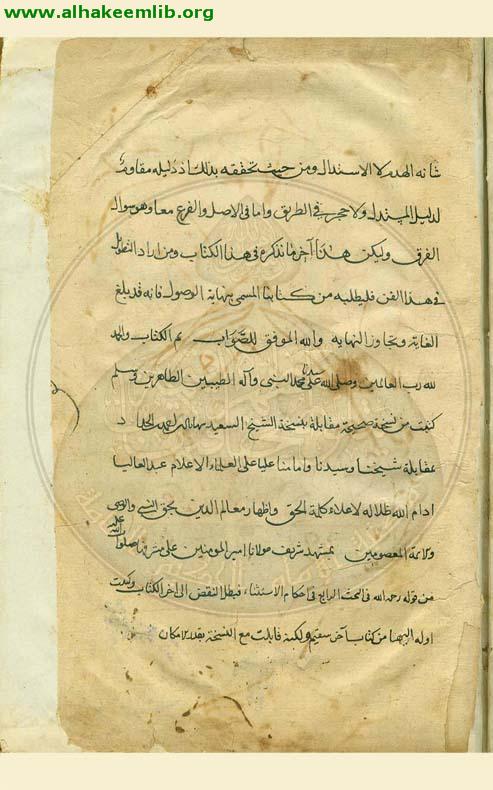 www.alhakeemlib.org
شانه الهدم لا الاستدلال ومن حيث تحققه بذلك اذ دليله مقاوم
لدليل المستدل ولا حجر في الطريق واما في الاصل والفرع معا وهو سوال
الفرق وليكن هذا آخر ما نذكره في هذا الكتاب ومن اراد التطويل
في هذا الفن فليطلبه من كتابنا المسمى بنهاية الوصول فانه قد بلغ
الغاية وتجاوز النهايه والله الموفق للصواب تم الكتاب والحمد
لله رب العالمين وصلى الله على سيدنا محمد النبي وآله الطيبين الطاهرين وسلم
كتبت من نسخة صحيحة مقابلة بنسخة الشيخ السعيد
بمقابلة شيخنا وسيدنا وامامنا عليا على العلماء الاعلام عبد العالي
ادام الله ظلاله لاعلاء كلمة الحق واظهار معالم الدين بحق النبي والوصي
المعصومين بمشهد شريف مولانا امير المومنين على مشرفه صلوات
الله عليه
من قوله رحمه الله في البحث الرابع في احكام الاستثناء فبطل النقض الى اخر الكتاب وكتبت
اوله اليها من كتاب آخر سقيم ولكنه قابلت مع النسخة بقدر الامكان